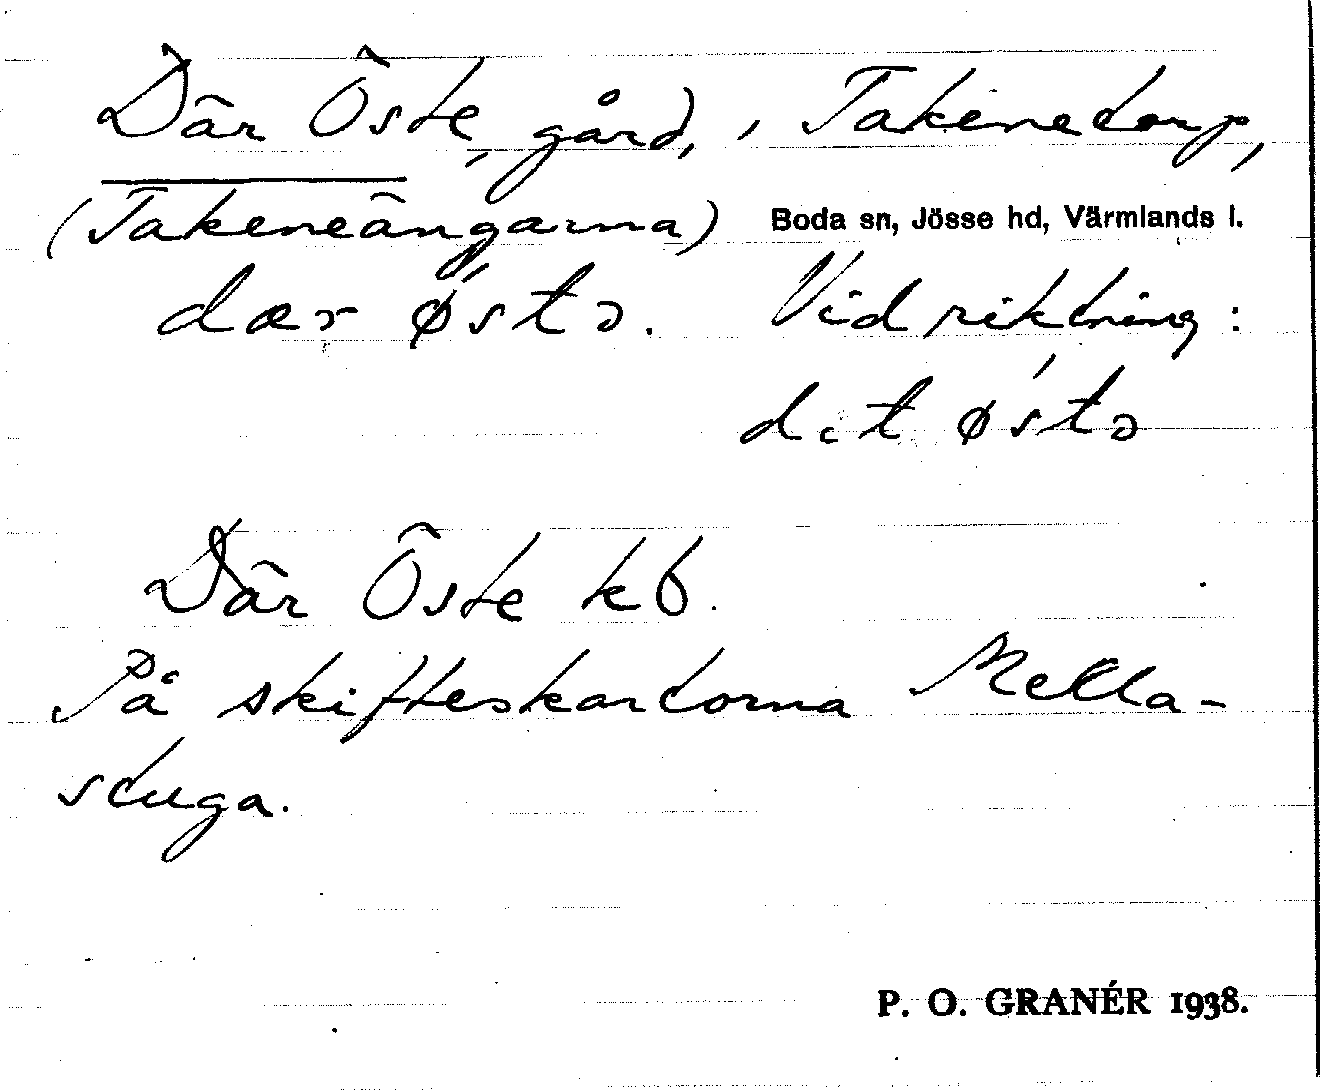 Där Öste, gård, i Takenetorp,
(Takeneängarna) Boda sn, Jösse hd, Värmlands l.
dær ǿstɔ. Vid riktning:
dit ǿstɔ
Där Öste kb.
På skifteskartorna Mella-
stuga.
P. O. GRANÉR 1938.